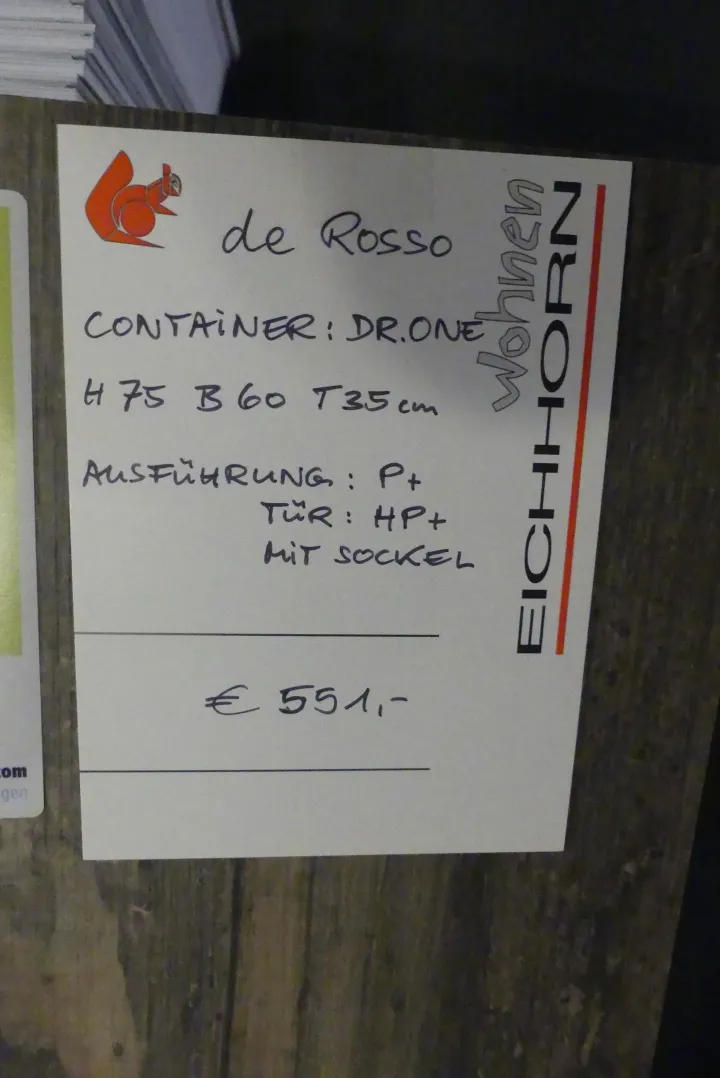 de Rosso
CONTAINER: DR.ONE
H 75 B 60 T 35 cm
AUSFÜHRUNG: P+
TÜR: HP+
MIT SOCKEL
€ 551,-
Wohnen
EICHHORN
com
gen